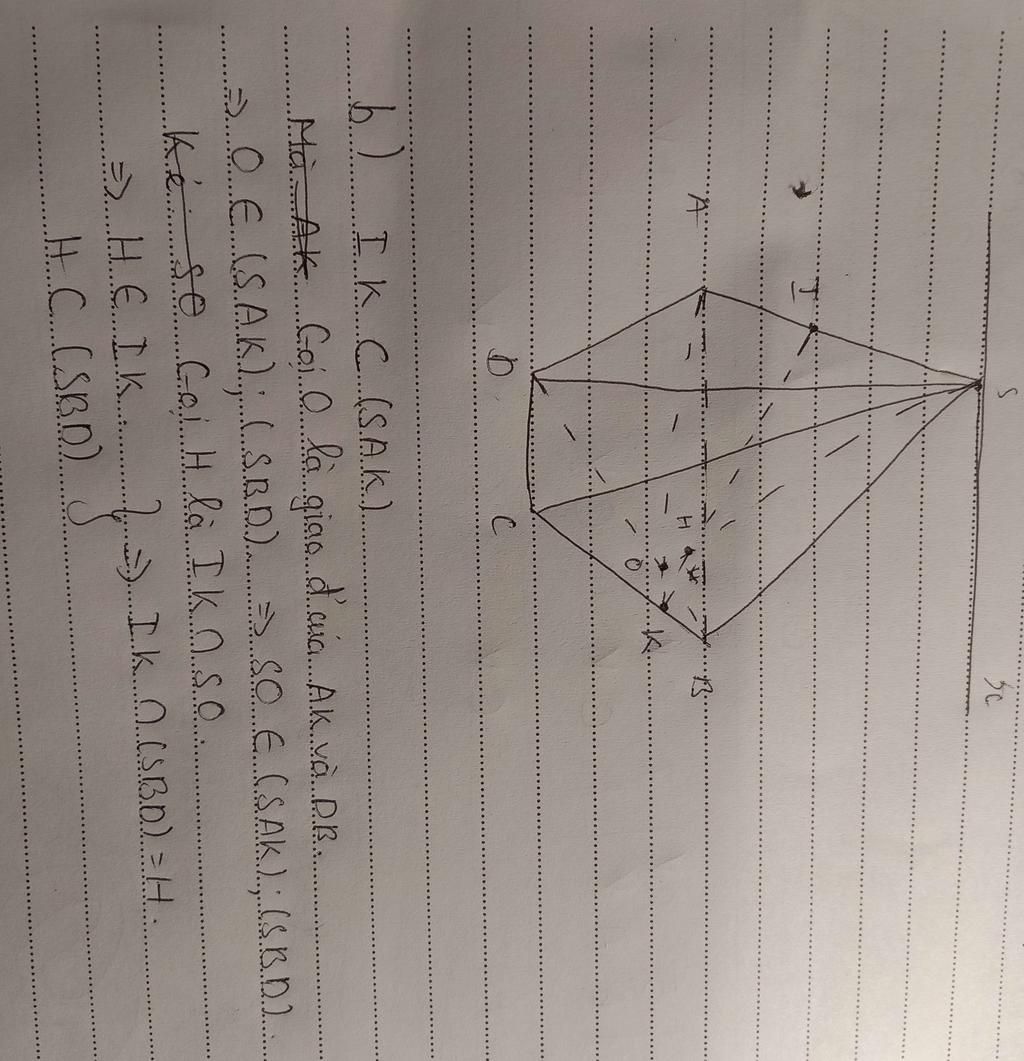 S
x
I
A
B
H
O
K
D
C
b) IK ⊂ (SAK)
Mà AK Gọi O là giao đ' của AK và DB.
⇒ O ∈ (SAK); (SBD) ⇒ SO ∈ (SAK); (SBD).
Kẻ SO Gọi H là IK ∩ SO.
⇒ H ∈ IK } ⇒ IK ∩ (SBD) = H.
H ⊂ (SBD)